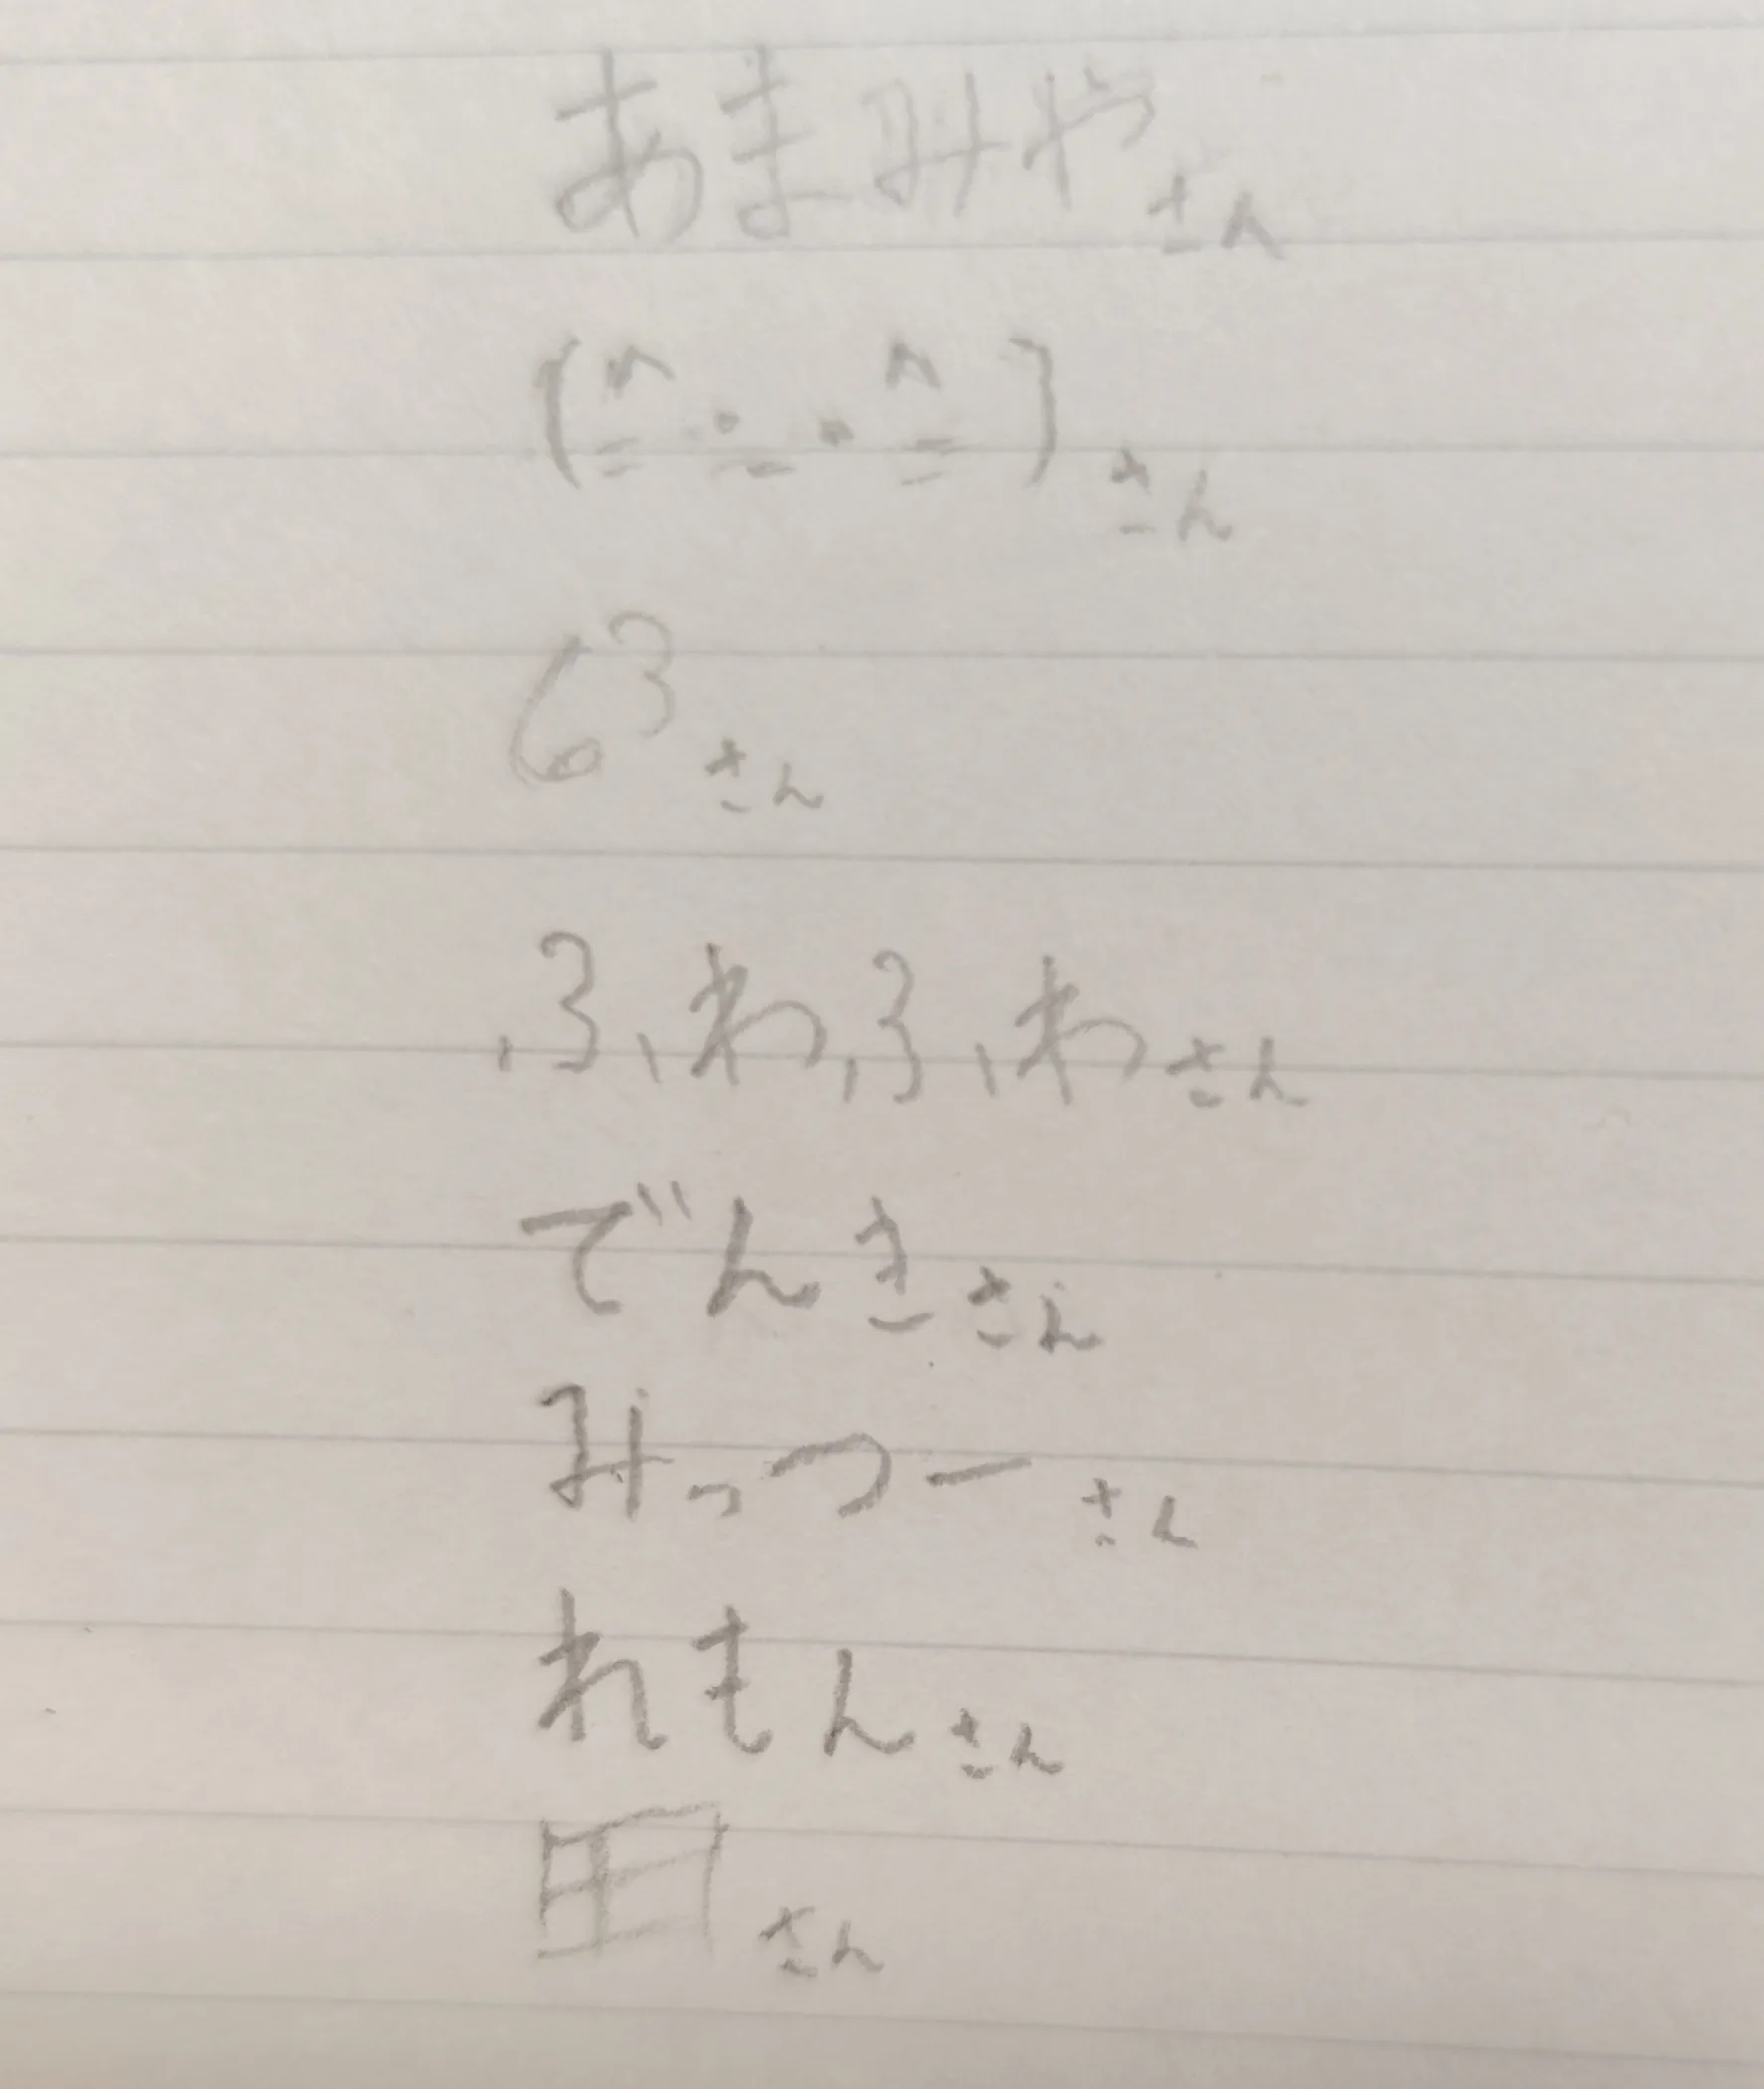 あまみやさん
(ミ・・ミ)さん
6³さん
ふわふわさん
でんきさん
みっつーさん
れもんさん
田さん